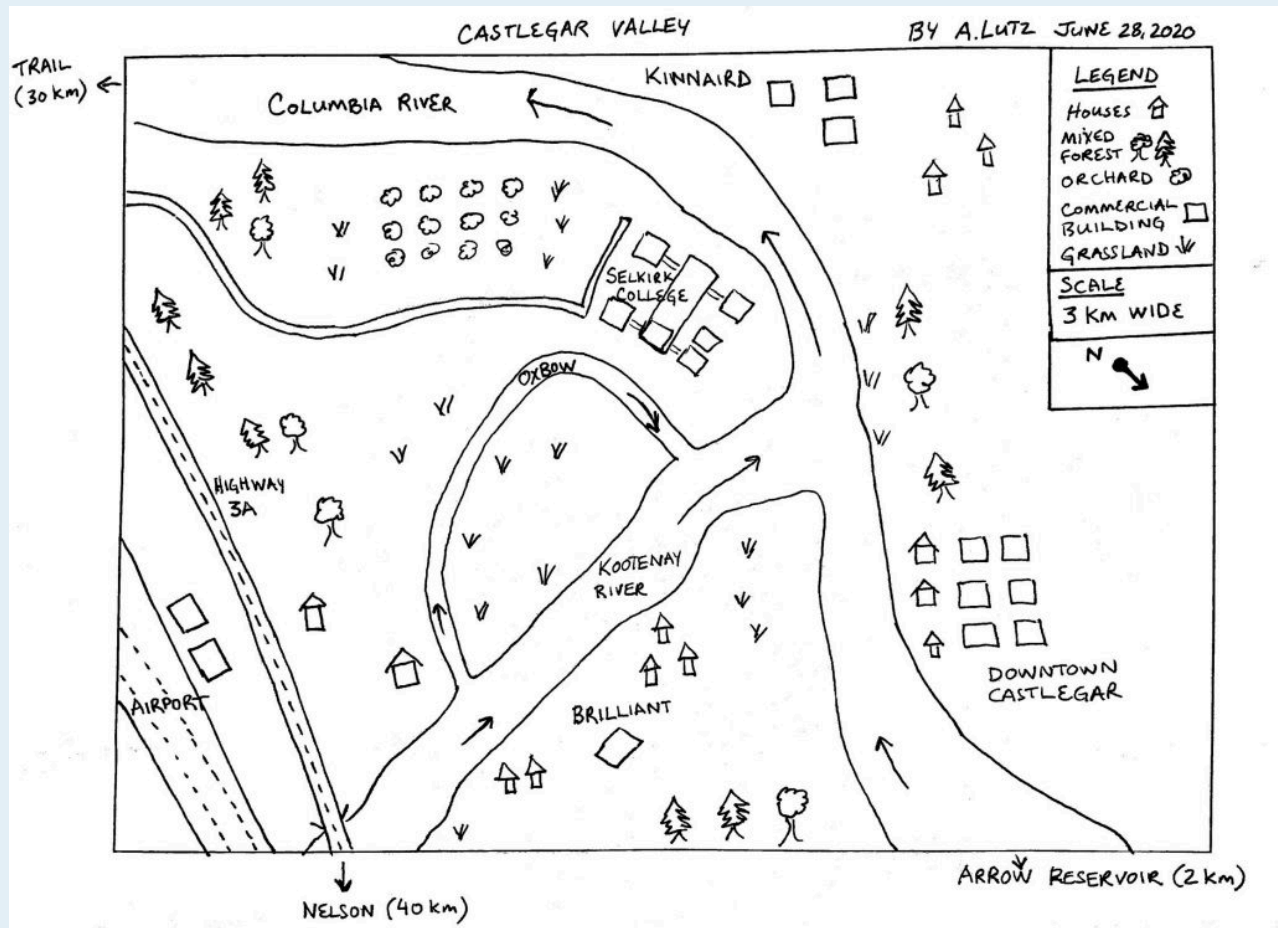 CASTLEGAR VALLEY
BY A.LUTZ JUNE 28, 2020
TRAIL
(30 km)
COLUMBIA RIVER
KINNAIRD
LEGEND
HOUSES
MIXED
FOREST
ORCHARD
COMMERCIAL
BUILDING
GRASSLAND
SCALE
3 KM WIDE
N
SELKIRK
COLLEGE
OXBOW
HIGHWAY
3A
KOOTENAY
RIVER
AIRPORT
BRILLIANT
DOWNTOWN
CASTLEGAR
NELSON (40 km)
ARROW RESERVOIR (2 km)